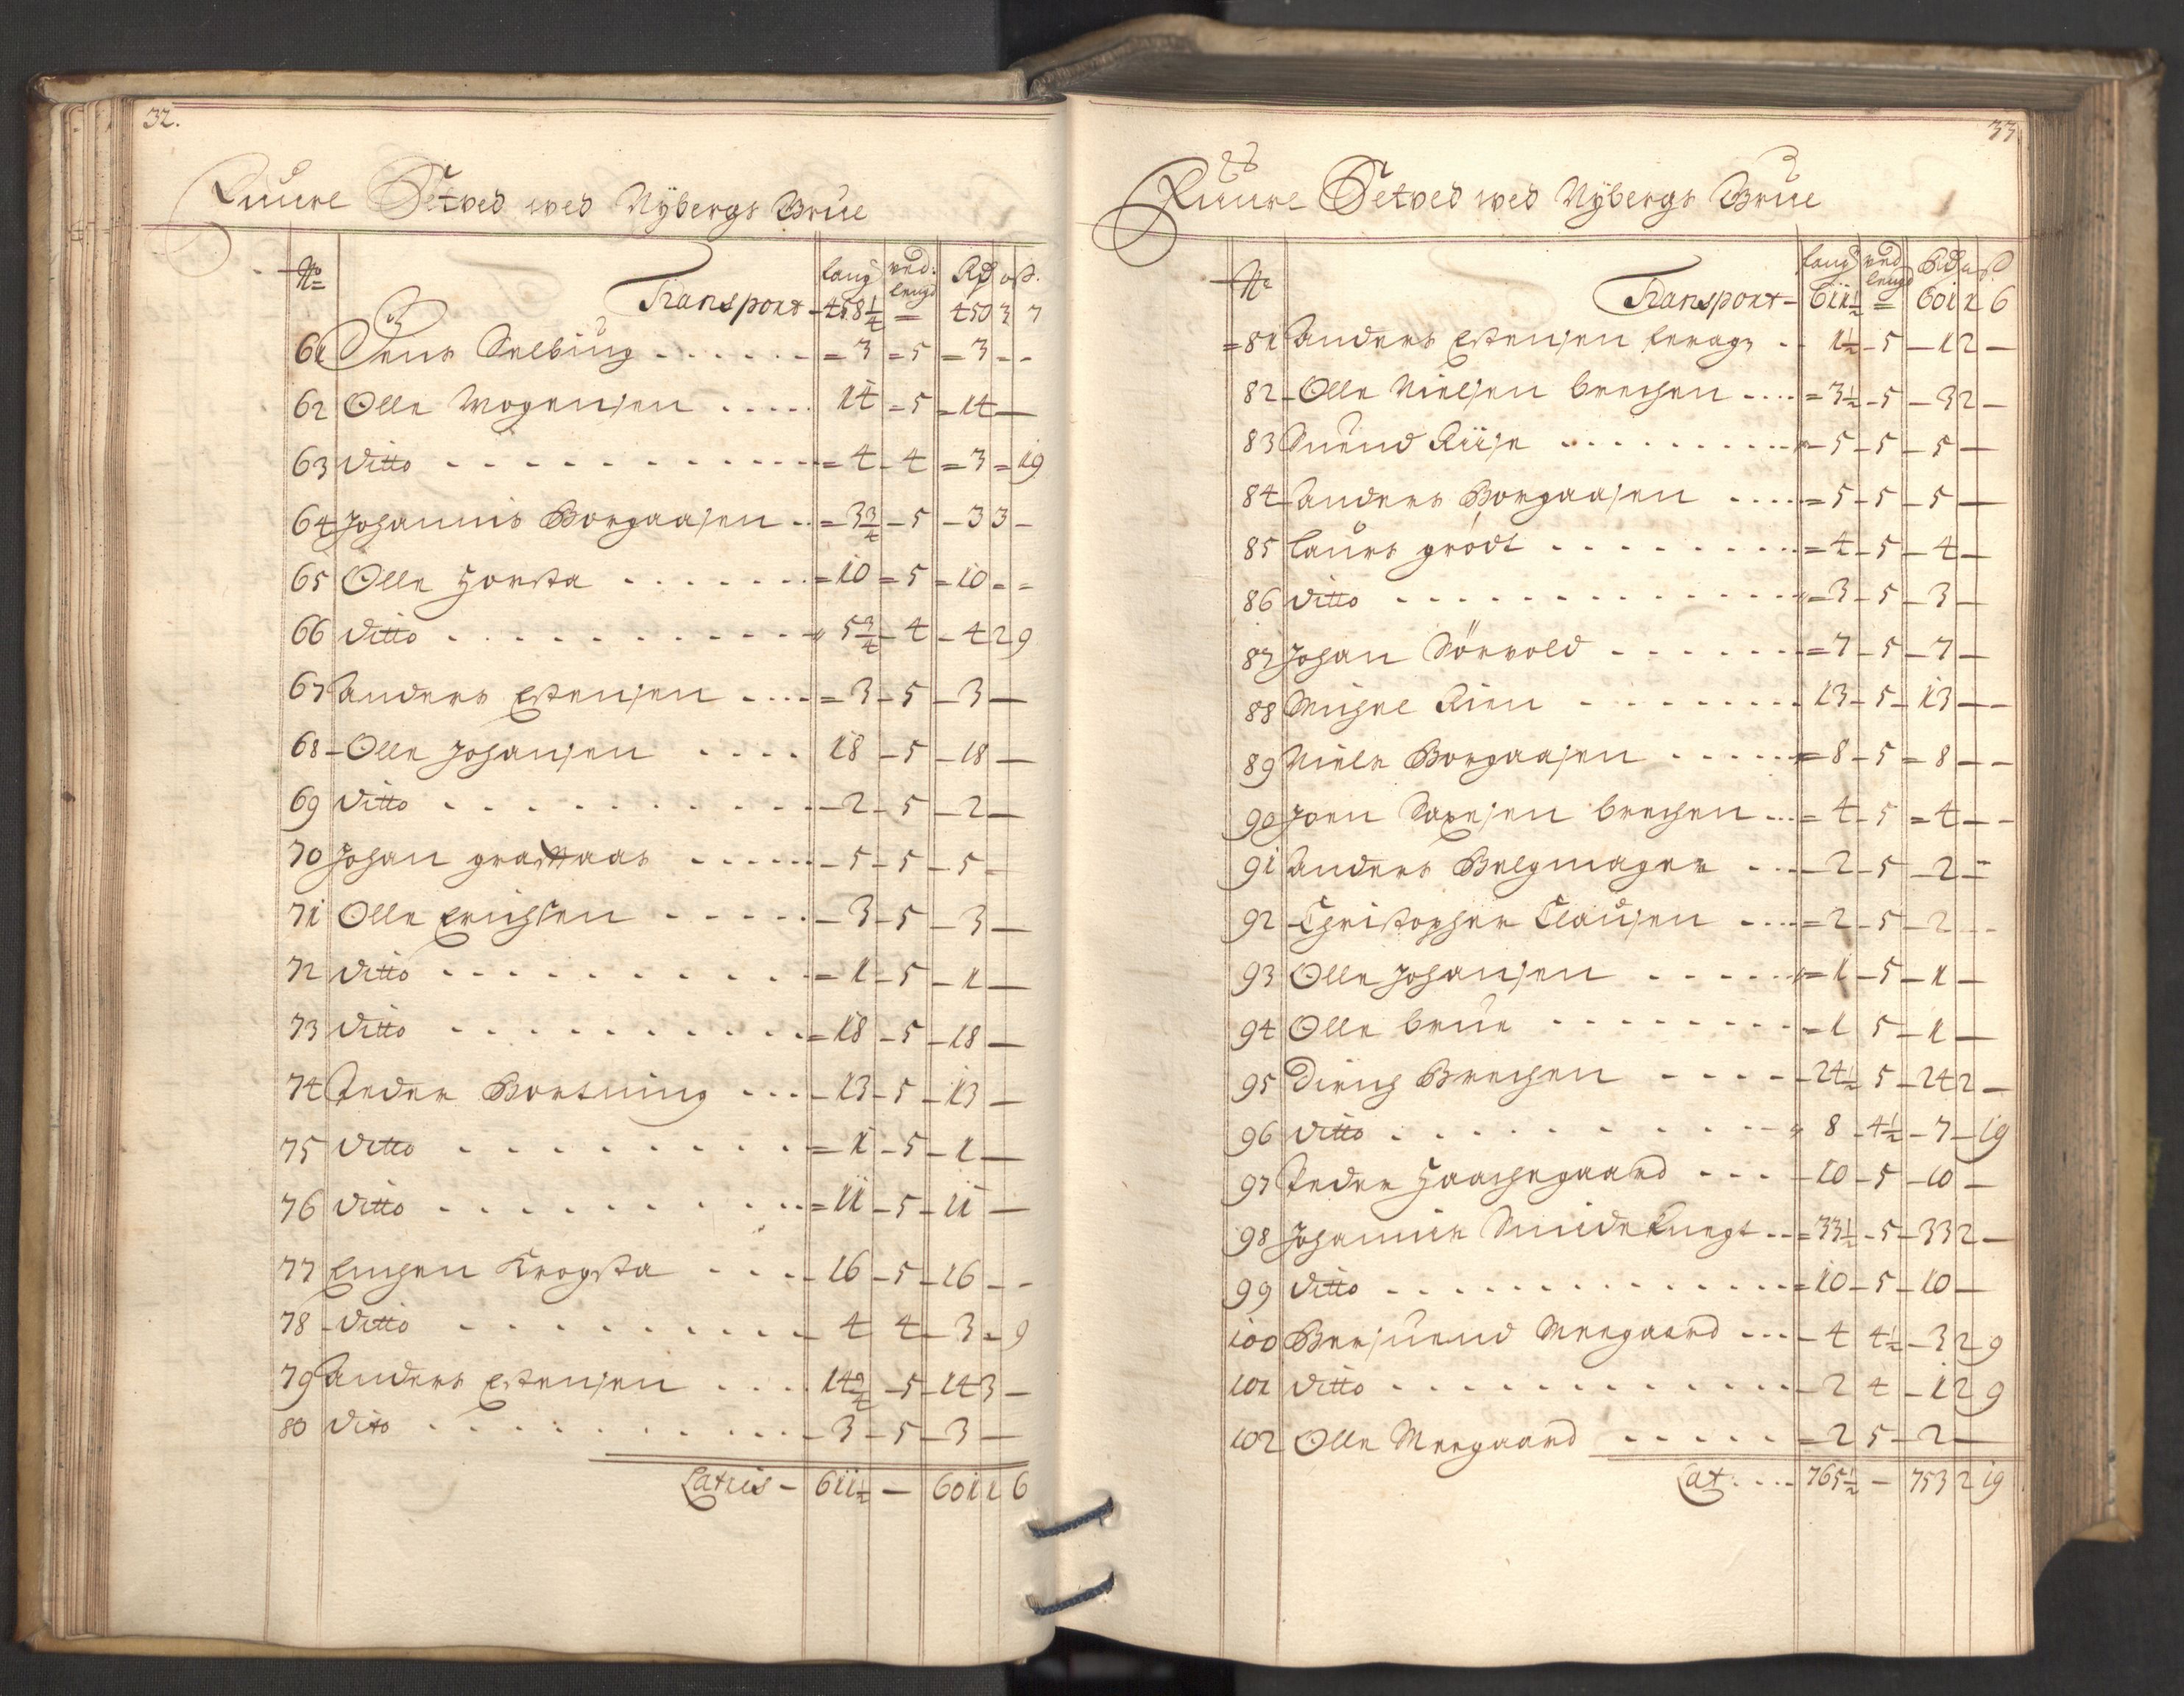 32.
Ruure Setved wed Nÿbergs Brue
No lang ved. lengd Rd ort ß.
Transport - 458 1/4 = 450 3 7
61 Jens Selbüug . . . . . . = 3 = 5 = 3 - -
62 Olle Mogensen . . . . . 14 - 5 = 14 —
63 ditto - - - - - - = 4 - 4 = 3 = 19
64 Johannis Borgaasen . . = 3 3/4 - 5 - 3 3 -
65 Olle Horsta . . . . . . = 10 = 5 = 10 - -
66 ditto . . . . . . 5 3/4 - 4 - 4 2 9
67 Anders Estensen . . . . = 3 - 5 - 3 —
68 - Olle Johansen . . . . 18 - 5 - 18 —
69 ditto . . . . . . - 2 - 5 - 2 —
70 Johan graaas . . . . . - 5 - 5 - 5 -
71 Olle Erichsen . . . . . - 3 - 5 - 3 —
72 ditto - - - - - - = 1 - 5 - 1 —
73 ditto - - - - - - = 18 - 5 - 18 —
74 Peder Bortning . . . - 13 - 5 - 13 —
75 ditto - - - - - - = 1 - 5 - 1 —
76 ditto . . . . . . = 11 - 5 - 11 —
77 Engen Krogsta . . . . - 16 - 5 - 16 - -
78 - ditto - - - - - - - 4 4 - 3 - 9
79 Anders Estensen . . . . 14 3/4 - 5 - 14 3 —
80 dito . . . . . . - 3 - 5 - 3 —
Latus - 611 1/2 — 601 1 6
33
Ruure Setved wed Nÿbergs Brue
No lang ved lengd Rd ort ß
Transport - 611 1/2 = 601 1 6
= 81 Anders Estensen . . 1 1/2 - 5 - 1 2 —
82 - Olle Nielsen brechen . . . . = 3 1/2 - 5 - 3 2 —
83 Suend Riise . . . . . . = 5 - 5 - 5 —
84 - Anders Borgaasen . . . . = 5 - 5 - 5 —
85 laurs grödt . . . . . . = 4 - 5 - 4 —
86 ditto - - - - - - = 3 - 5 - 3 —
87 Johan Sörvold - - - - - = 7 - 5 - 7 —
88 Michel Rien - - - - - 13 - 5 - 13 — -
89 Niels Borgaasen . . . . . = 8 - 5 = 8 — -
90 Joen Saxesen brechen . . . = 4 - 5 = 4 — -
91 Anders Belgmager . . . - 2 - 5 - 2 =
92 - Christopher Clausen . . . . = 2 - 5 - 2 - -
93 Olle Johansen . . . . . = 1 - 5 - 1 —
94 Olle brue - - - - - - = 1 5 - 1 —
95 Dirich Brechen - - - - - 24 1/2 5 - 24 2 —
96 ditto . . . . . . 8 - 4 1/2 - 7 - 19
97 Peder Haachegaard - - - - 10 - 5 - 10 —
98 Johannis Smideknegt . . = 33 1/2 - 5 - 33 2 —
99 ditto . . . . . . = 10 - 5 - 10 —
100 Bersuend Meegaard . . . - 4 4 1/2 - 3 2 9
101 ditto . . . . . . - 2 4 - 1 2 9
102 Olle Meegaard - - - - - = 2 5 - 2 —
Lat: . . . - 765 1/2 — 753 2 19